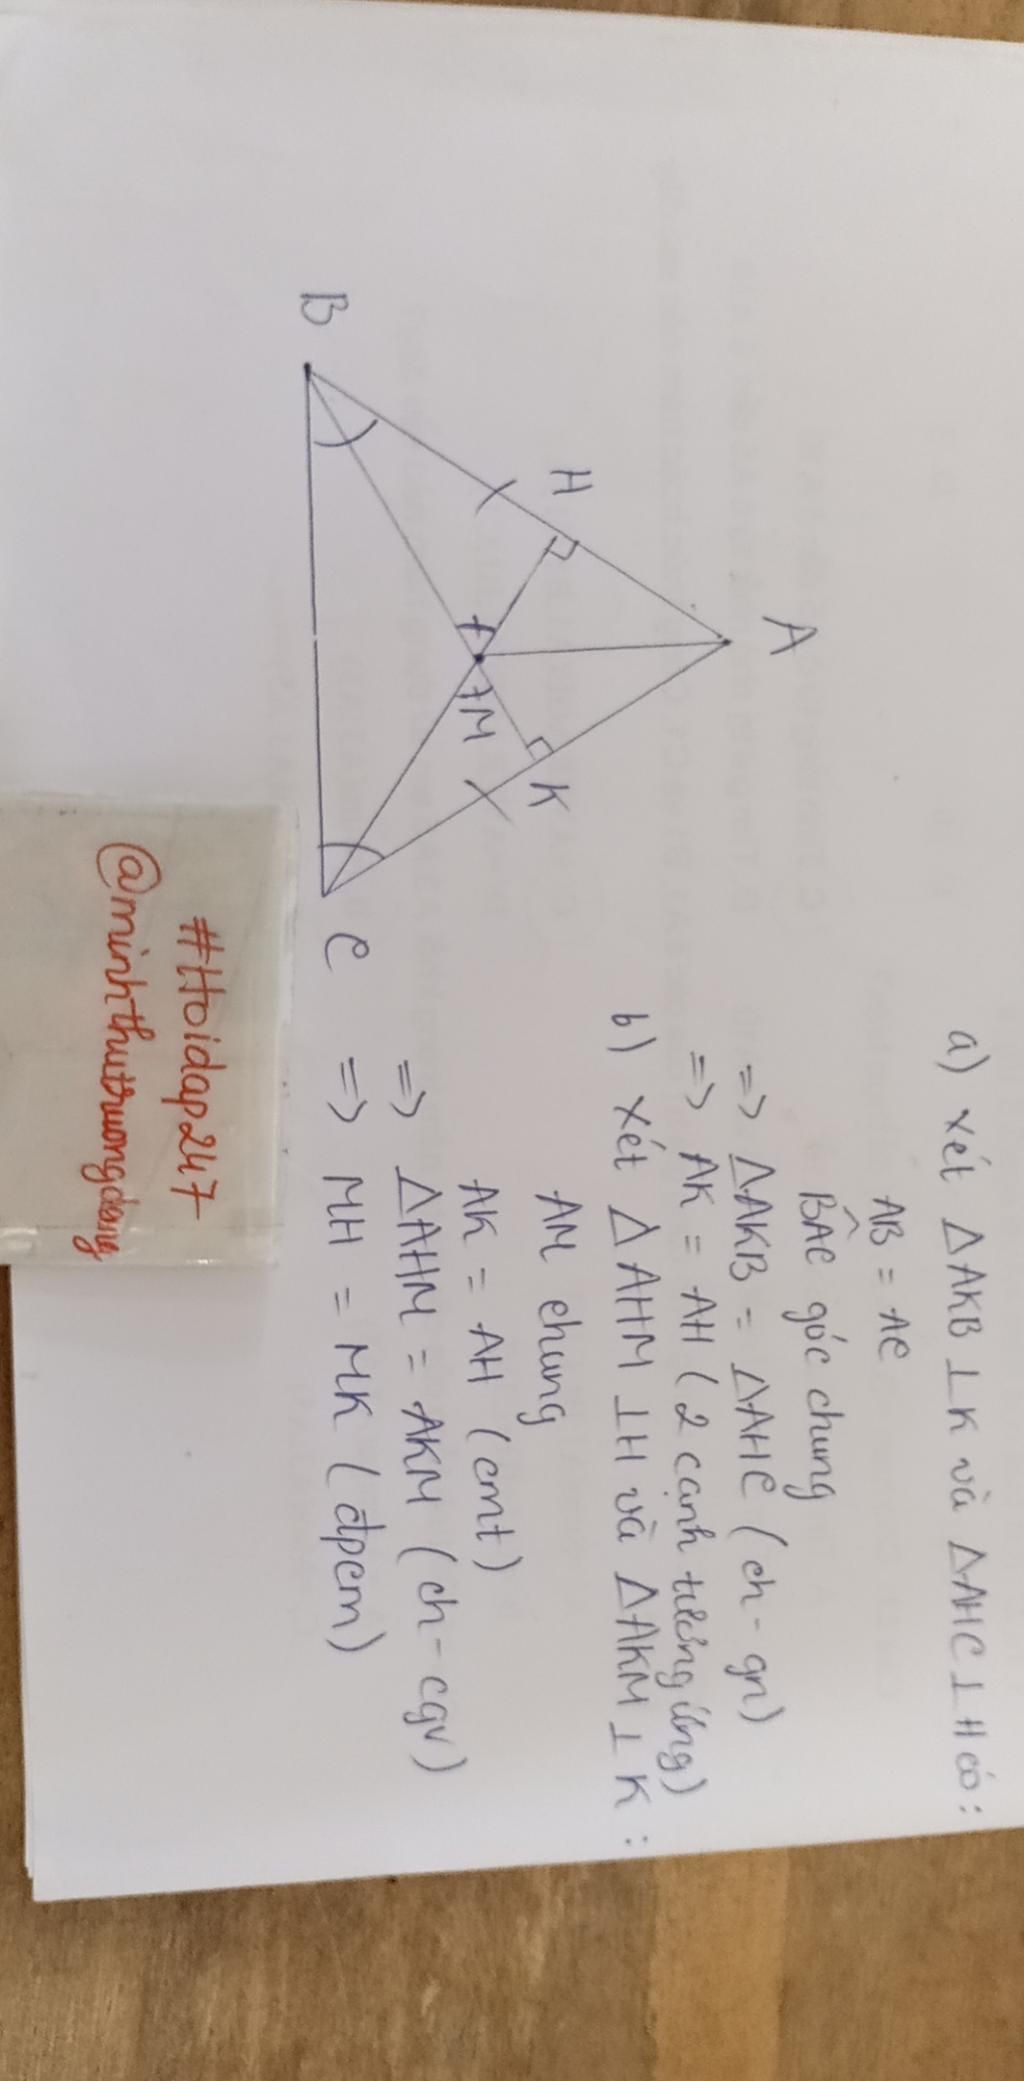 A
H
K
M
B
C
a) Xét ΔAKB ⊥ K và ΔAHC ⊥ H có:
AB = AC
BAC góc chung
=> ΔAKB = ΔAHC (ch - gn)
=> AK = AH (2 cạnh tương ứng)
b) Xét ΔAHM ⊥ H và ΔAKM ⊥ K:
AM chung
AK = AH (cmt)
=> ΔAHM = AKM (ch - cgv)
=> MH = MK (đpcm)
#Hoidap247
@minhthutruongdang